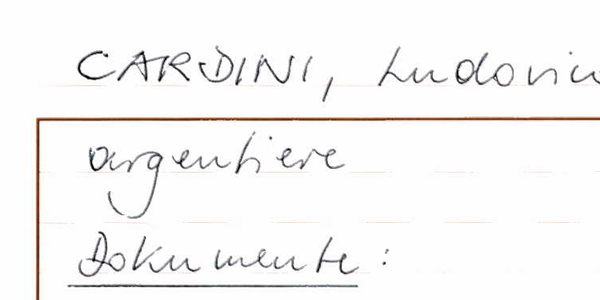 CARDINI, Ludovic
argentiere
Dokumente: